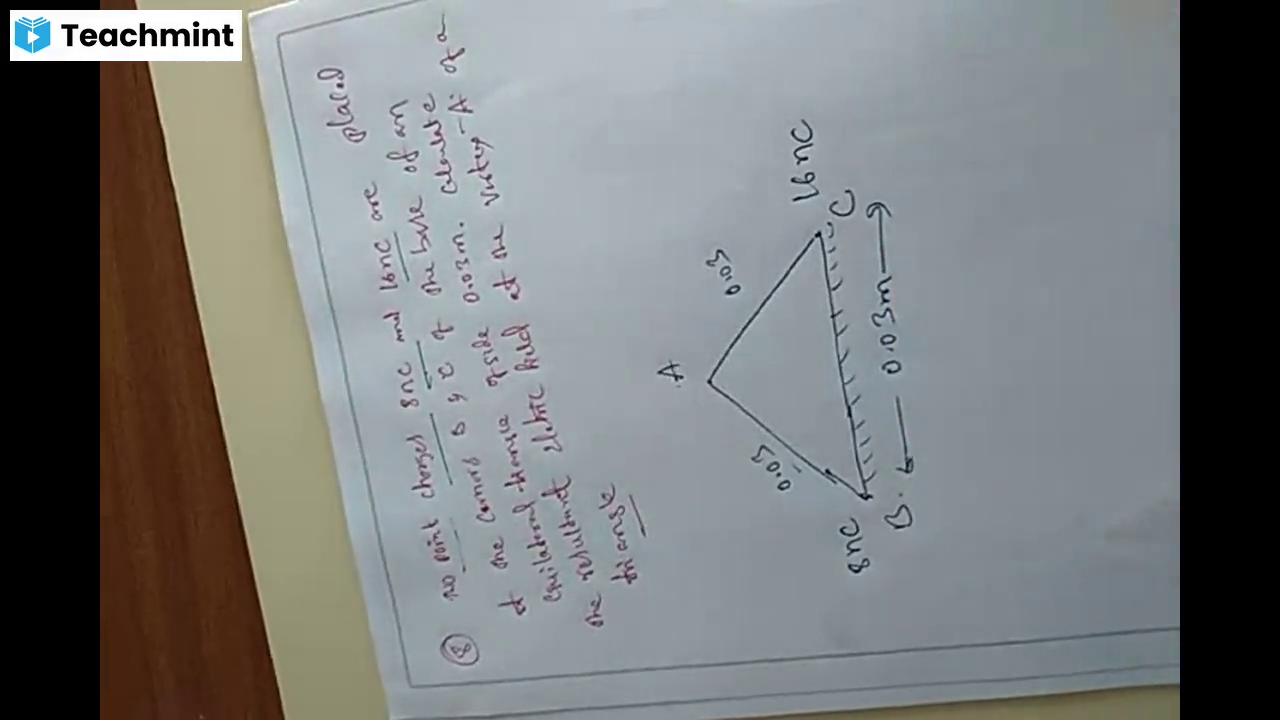 Teachmint
placed
⑧ no point charges 8nc and 16nc are
at the corners B & C of the base of an
equilateral triangle of side 0.03m. calculate
the resultant electric field at the vertex-A. of a
triangle
A
0.03
0.03
8nc
16nc
B.
C
0.03m